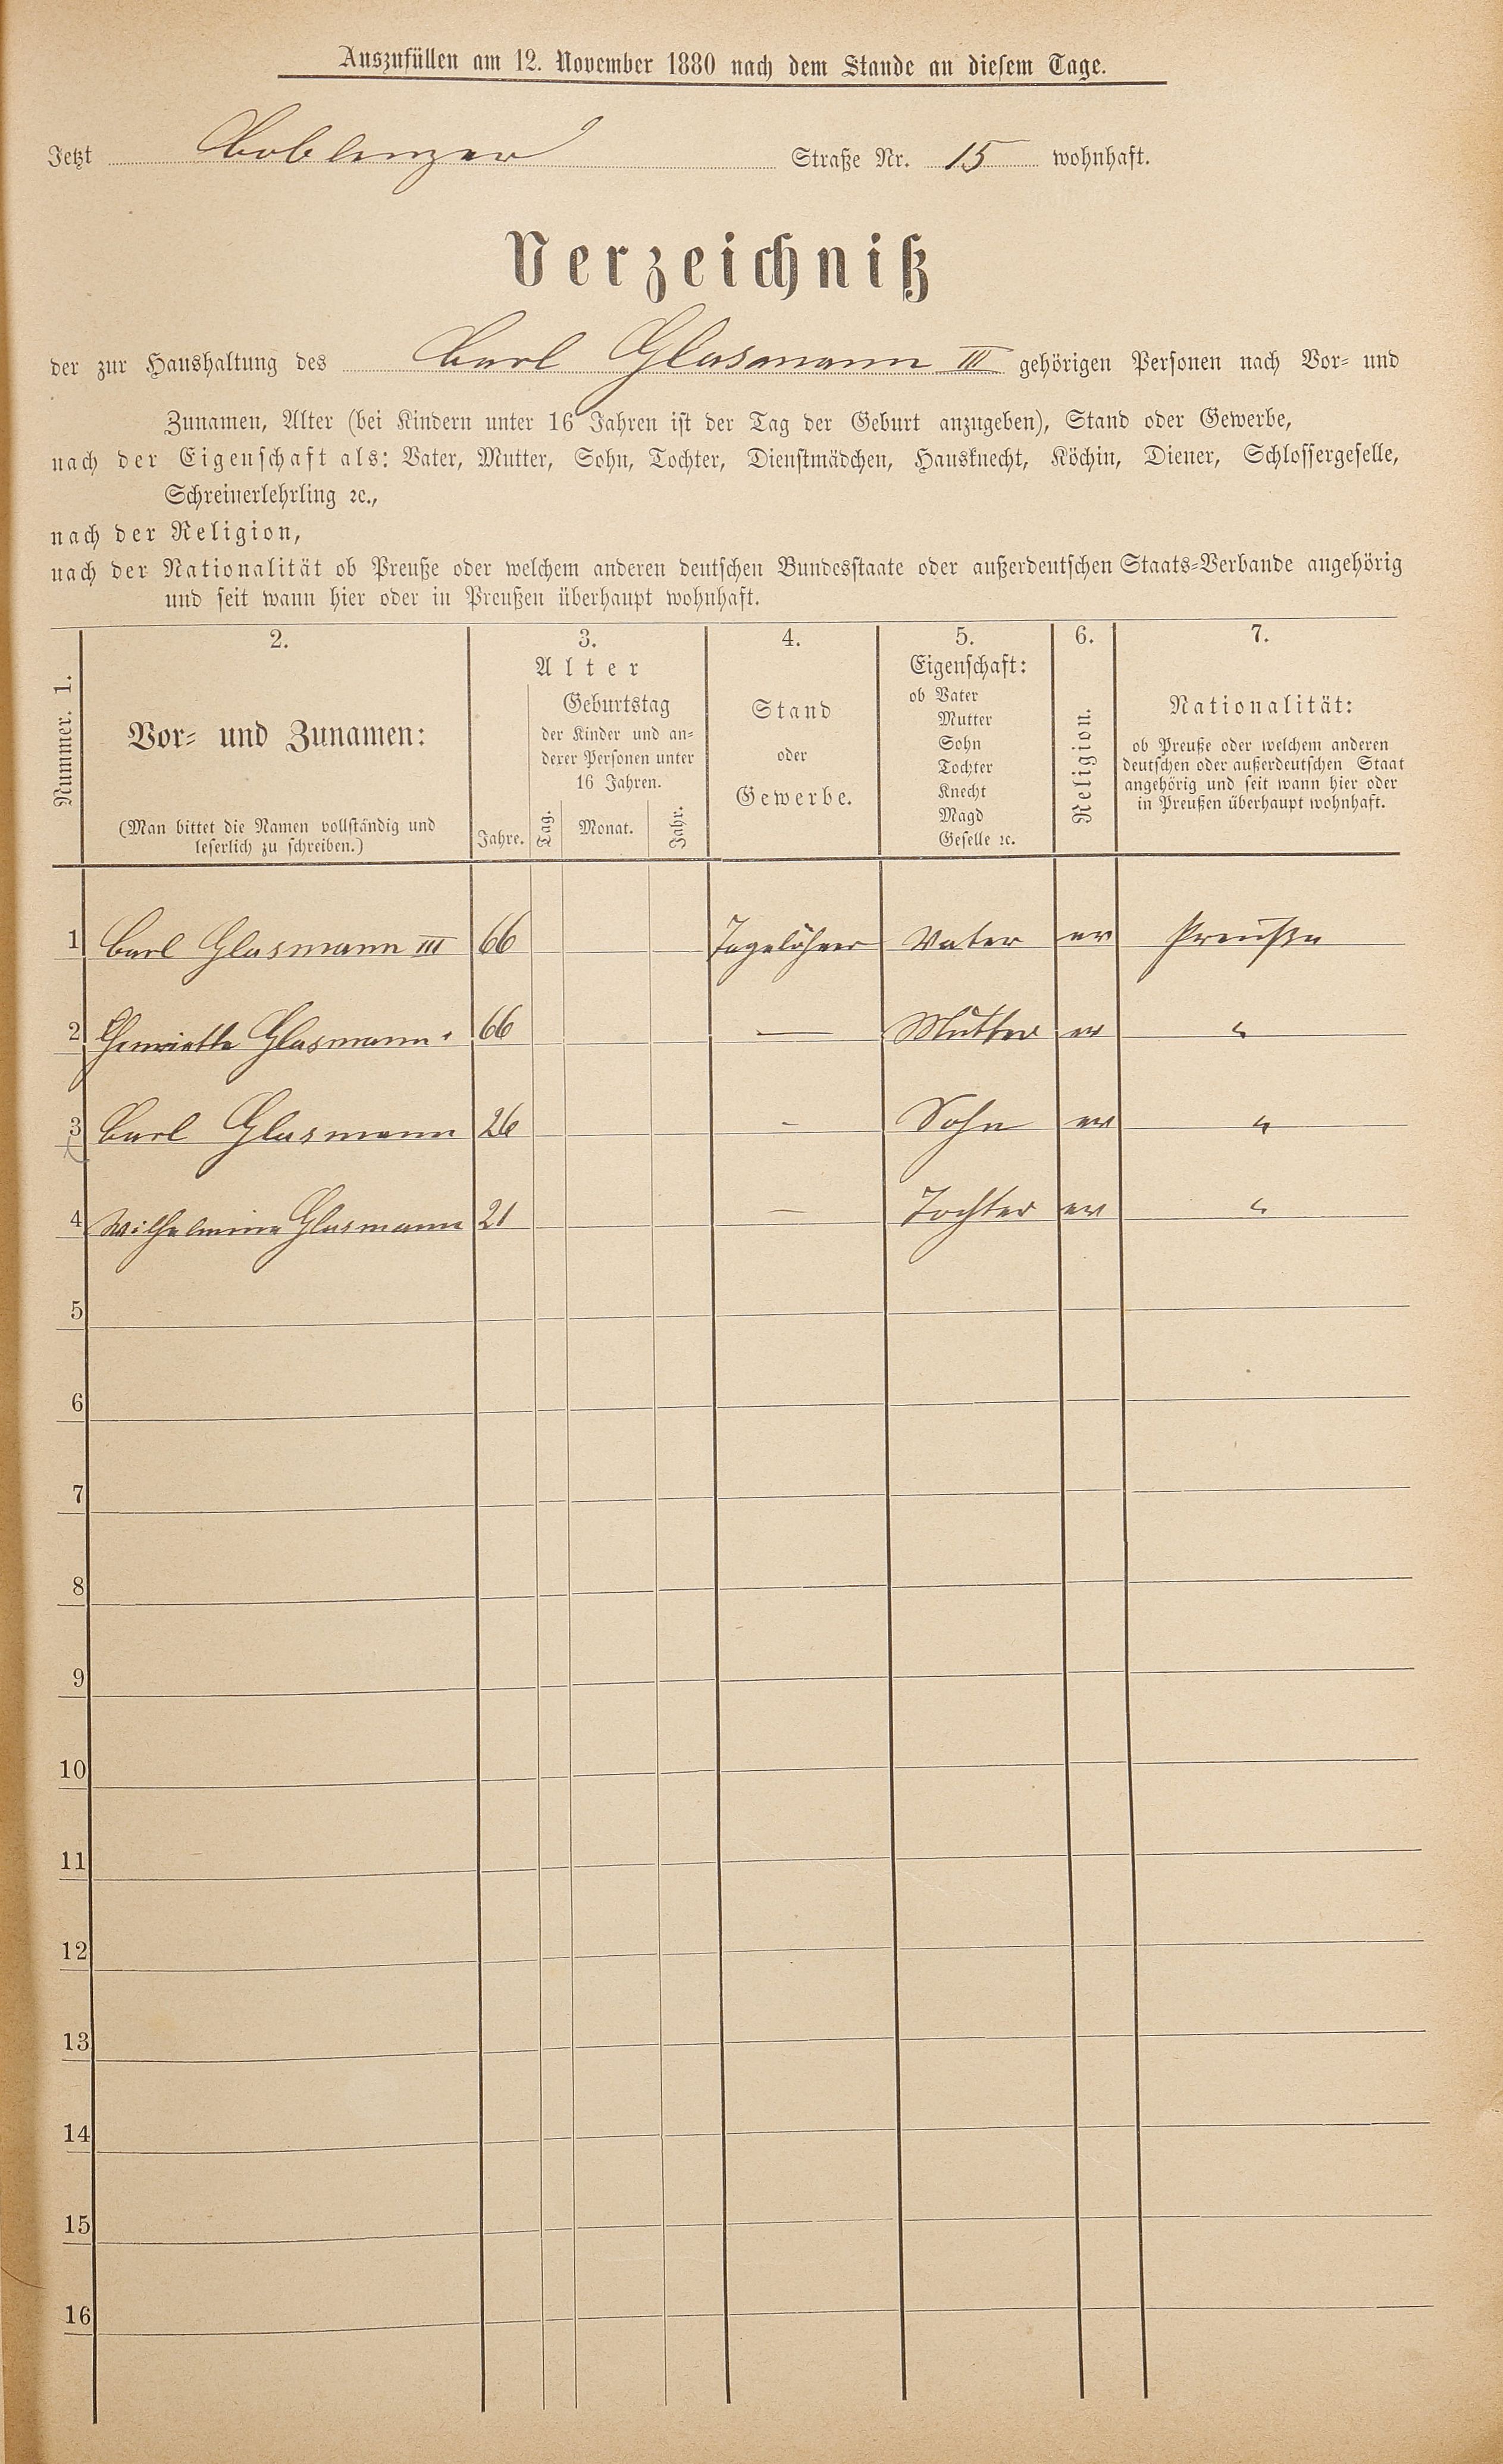 Auszufüllen am 12. November 1880 nach dem Stande an diesem Tage.
Jetzt Coblenzer Straße Nr. 15 wohnhaft.
Verzeichniß
der zur Haushaltung des Carl Glasmann III gehörigen Personen nach Vor- und
Zunamen, Alter (bei Kindern unter 16 Jahren ist der Tag der Geburt anzugeben), Stand oder Gewerbe,
nach der Eigenschaft als: Vater, Mutter, Sohn, Tochter, Dienstmädchen, Hausknecht, Köchin, Diener, Schlossergeselle,
Schreinerlehrling ꝛc.,
nach der Religion,
nach der Nationalität ob Preuße oder welchem anderen deutschen Bundesstaate oder außerdeutschen Staats-Verbande angehörig
und seit wann hier oder in Preußen überhaupt wohnhaft.
Nummer. 1.
2.
Vor- und Zunamen:
(Man bittet die Namen vollständig und
leserlich zu schreiben.)
3.
Alter
Jahre.
Geburtstag
der Kinder und an-
derer Personen unter
16 Jahren.
Tag. Monat. Jahr.
4.
Stand
oder
Gewerbe.
5.
Eigenschaft:
ob Vater
Mutter
Sohn
Tochter
Knecht
Magd
Geselle ꝛc.
6.
Religion.
7.
Nationalität:
ob Preuße oder welchem anderen
deutschen oder außerdeutschen Staat
angehörig und seit wann hier oder
in Preußen überhaupt wohnhaft.
1 Carl Glasmann III 66 Tagelöhner Vater ev Preuße
2 Henriette Glasmann 66 — Mutter ev "
3 Carl Glasmann 26 - Sohn ev "
4 Wilhelmine Glasmann 21 — Tochter ev "
5
6
7
8
9
10
11
12
13
14
15
16